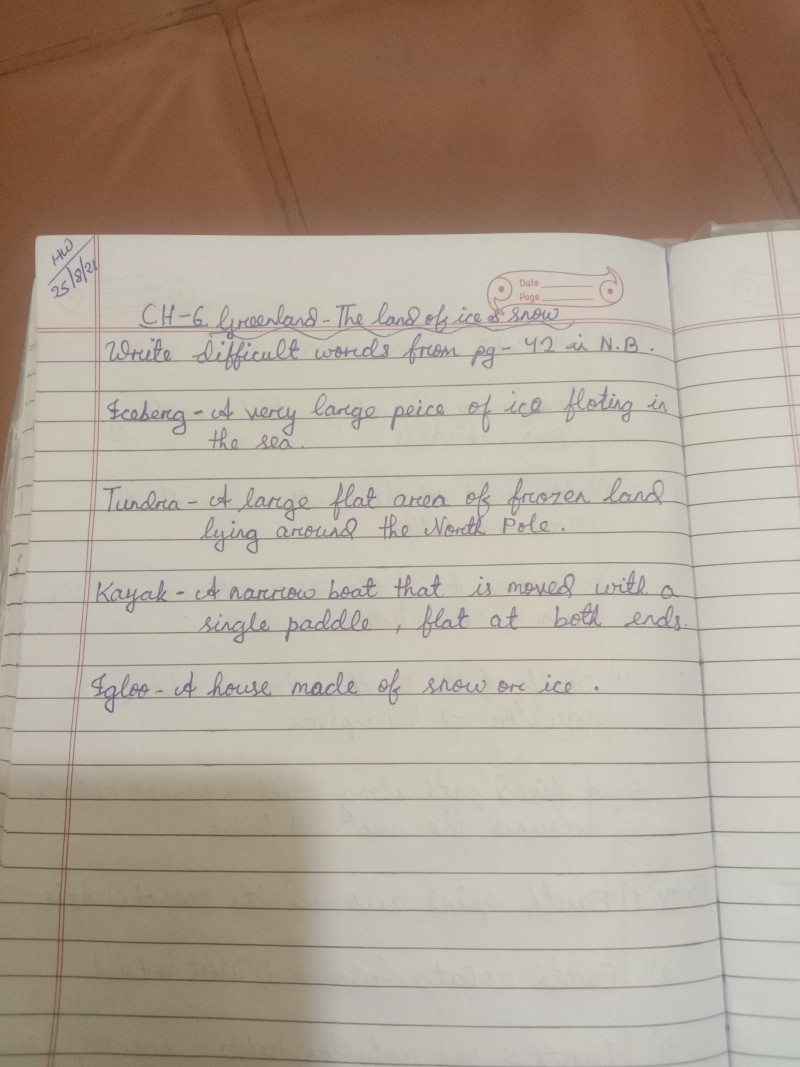 HW
25/8/21
Date
Page
CH-6 Greenland - The land of ice & snow
Write difficult words from pg - 42 in N.B.
Iceberg - A very large peice of ice floting in
the sea.
Tundra - A large flat area of frozen land
lying around the North Pole.
Kayak - A narrow boat that is moved with a
single paddle, flat at both ends.
Igloo - A house made of snow or ice.